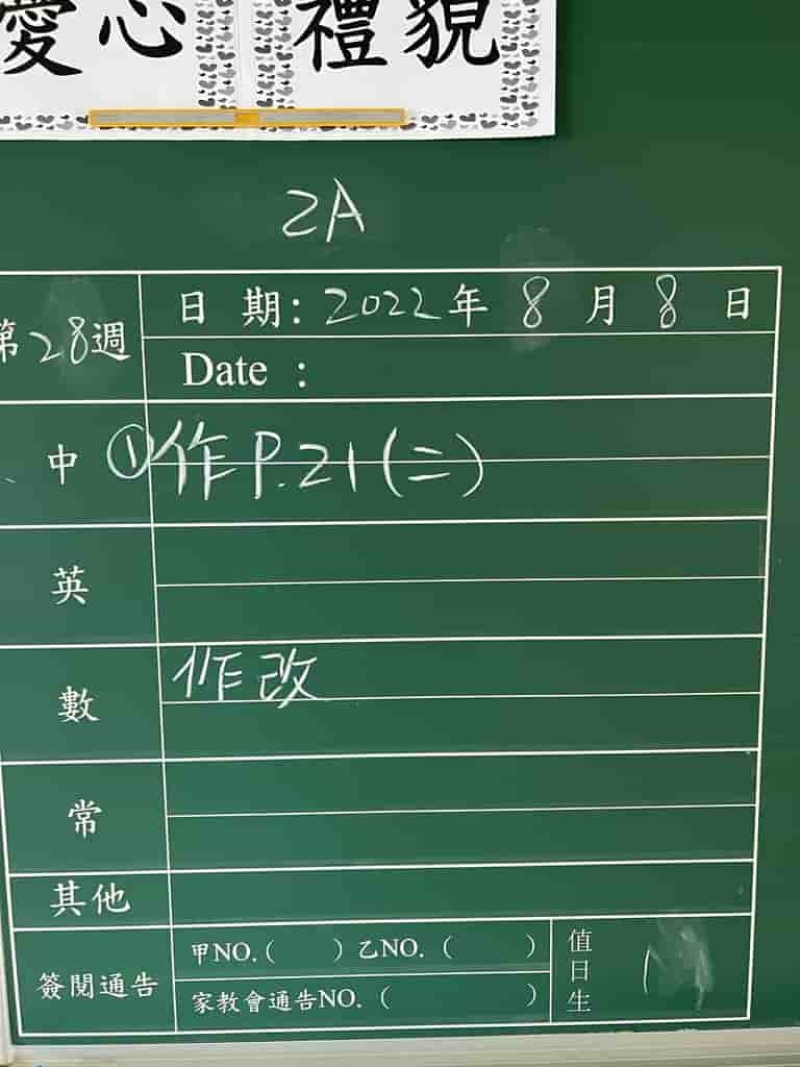 愛心 禮貌
2A
第28週 日期：2022年8月8日
Date：
中 ①作P.21(二)
英
數 作改
常
其他
簽閱通告 甲NO.( ) 乙NO.( ) 值日生
家教會通告NO.( )